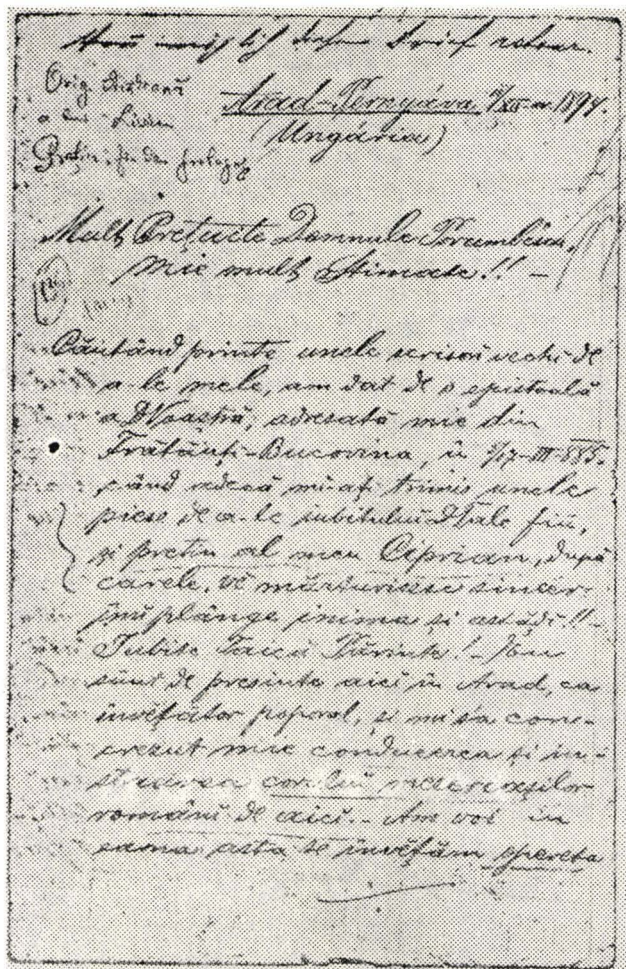 Arad-Pernyáva 1894.
(Ungária)
Mult Prețuite Domnule Porumbescu,
Mie mult Stimate!! –
Căutând printe unele scrisori vechi de
a-le mele, am dat de o epistoală
a DVoastră, adresată mie din
Frătăuți-Bucovina, în 5/17-III-885.
când adecă mi-ați trimis unele
piese de a-le iubitului DTale fiu,
și pretin al meu Ciprian, după
carele, vĕ mărturisesc sincer
îmi plânge inima și astăḑi!! –
Iubite Taică Părinte! – Eu
sunt de presinte aici în Arad, ca
învĕțător poporal, și mi s'a con-
crezut mie conducerea și in-
struarea corului meseriașilor
români de aici. – Am voi în
earna asta se învĕțăm opereta